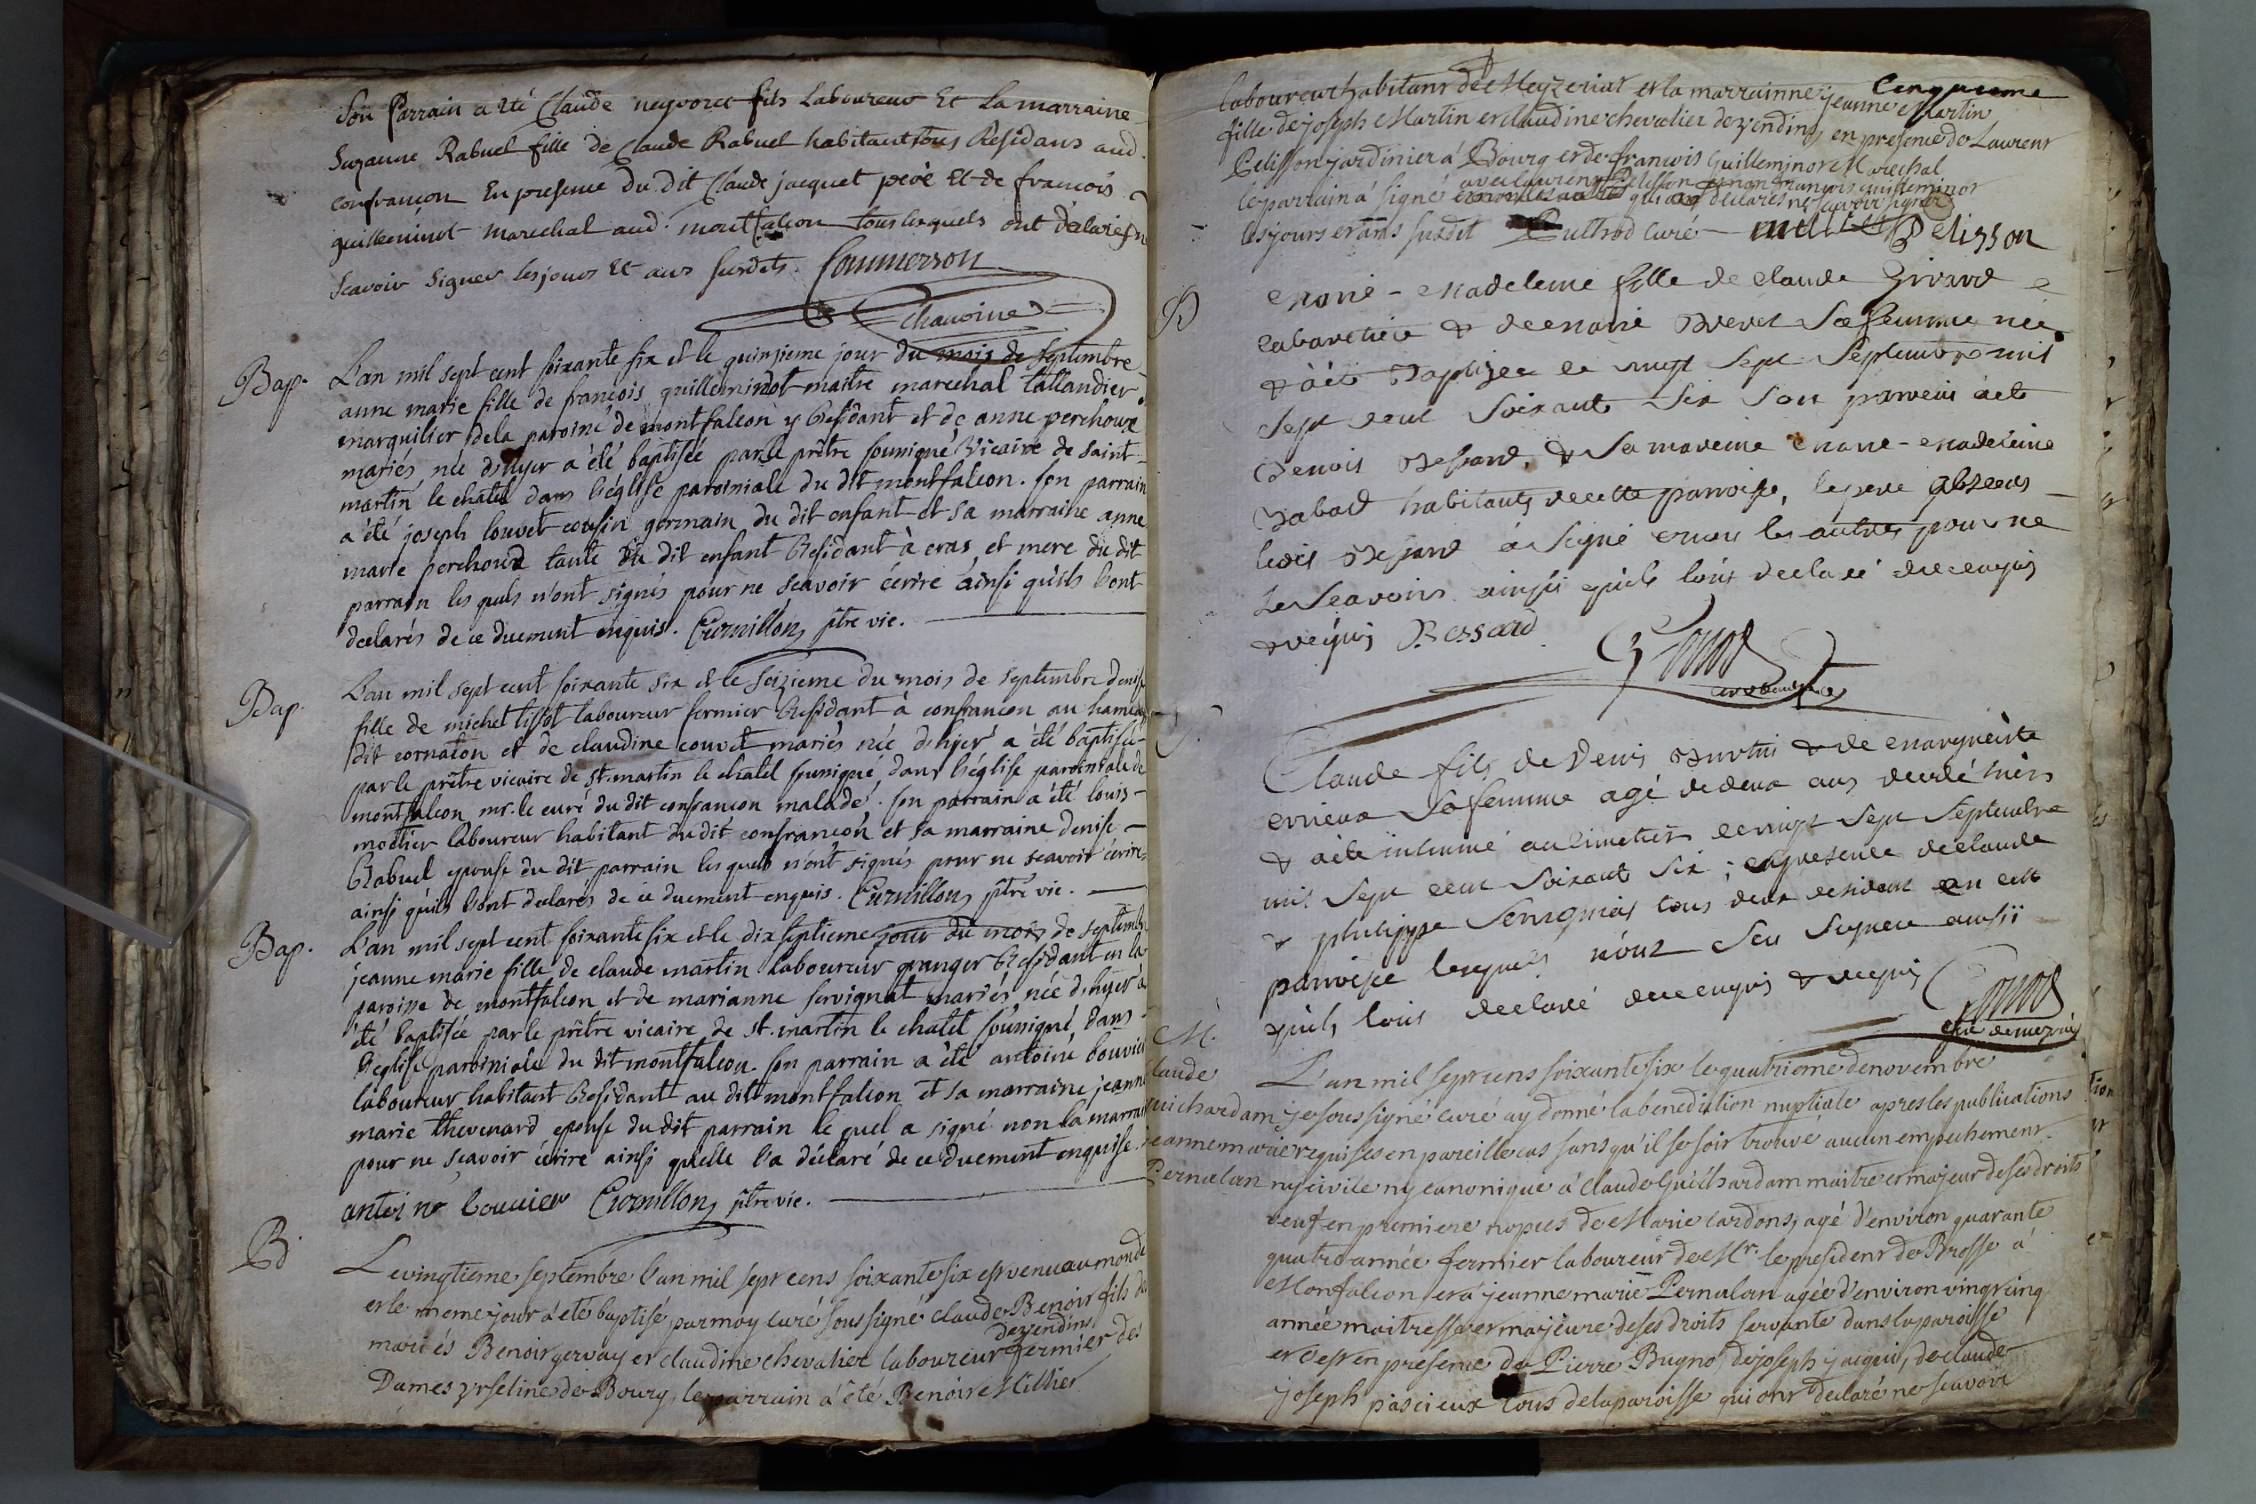 Son Parrain a été Claude neyvoret fils Laboureur Et La marraine
Suzanne Rabuel fille de Claude Rabuel habitants tous Residans aud.
confrancon En presence du dit Claude jacquet père Et de francois
guilleminot marechal aud. montfalcon tous lesquels ont déclaré
Scavoir Signer les jours Et ans susdits. Commerson
chanoine
Bap. L'an mil sept cent soixante six et le quinzieme jour du mois de septembre
anne marie fille de françois guilleminot maitre marechal tallandier
marguilier de la paroisse de montfalcon y Residant et de anne perchoux
mariés née d'hyer a été baptisée par le prêtre soussigné Vicaire de saint
martin le chatel dans l'église paroissiale du dit montfalcon. son parrain
a été joseph louvet cousin germain du dit enfant et sa marraine anne
marie perchoud tante du dit enfant Residant à cras et mere du dit
parrain les quels n'ont signés pour ne scavoir écrire ainsi qu'ils l'ont
declarés de ce duement enquis. Curnillon, ptre vic.
Bap. L'an mil sept cent soixante six et le seizieme du mois de septembre denise
fille de michel tissot laboureur fermier Residant à confrancon au hameau
dit cornaton et de claudine couvet mariés née d'hyer a été baptisée
par le prêtre vicaire de st. martin le chatel soussigné, dans l'église paroissiale de
montfalcon mr. le curé du dit confrancon malade. son parrain a été louis
moctier laboureur habitant du dit confrancon et sa marraine denise
Rabuel epouse du dit parrain les quels n'ont signés pour ne scavoir écrire
ainsi qu'ils l'ont declarés de ce duement enquis. Curnillon, ptre vic.
Bap. L'an mil sept cent soixante six et le dix septieme jour du mois de septembre
jeanne marie fille de claude martin laboureur granger Residant en la
paroisse de montfalcon et de marianne servignat mariés, née d'hyer a
été baptisée par le prêtre vicaire de st. martin le chatel soussigné, dans
l'église paroissiale du dit montfalcon. son parrain a été antoine bouvier
laboureur habitant Residant au dit montfalcon et sa marraine jeanne
marie thevenard epouse du dit parrain le quel a signé non la marraine
pour ne scavoir écrire ainsi qu'elle l'a déclaré de ce duement enquise.
antoine bouvier Curnillon, ptre vic.
B. Le vingtieme septembre l'an mil sept cens soixante six est venu au monde
et le meme jour a été baptisé par moy curé soussigné claude Benoit fils de
mariés Benoit gervay et claudine chevalier laboureur dezendins fermier des
Dames Urseline de Bourg, le parrain a été Benoit Millier
Cinquieme
laboureur habitant de Meyzeriat et la marrainne jeanne Martin
fille de joseph Martin et claudine chevalier dezendins en presence de Laurent
Pelisson jardinier a Bourg et de francois Guilleminot Marechal
le parrain a signé avec laurent Pelisson et non francois guilleminot
qui a declarés ne scavoir signer
les jours et ans susdit curé Pelisson
B Marie-Madeleine fille de Claude Girard
cabaretier & de Marie Brevet Sa femme née
& a été Baptizée le vingt sept Septembre mil
sept cent soixante six son parrein a été
Benoit Bessard, & sa mareine Marie-Madeleine
habitants de cette paroisse, le pere absent
ledit Bessard a signé & non les autres pour ne
le Scavoir ainsi qu'ils l'ont declaré de ce enquis
& requis Bessard
S. Claude fils de Denis & de Marguerite
sa femme agé de deux ans decedé hier
& a été inhumé au cimetier le vingt sept septembre
mil sept cent soixante six; en presence de Claude
& philippe Servignat tous deux residant en cette
paroisse lesquels n'ont Seu Signer ainsi
qu'ils l'ont declaré de ce enquis & requis
M.
Claude
guichardam
jeanne marie
Pernalan
L'an mil sept cens soixante six le quatrieme de novembre
je soussigné curé ay donné la benediction nuptiale apres les publications
requises en pareille cas sans qu'il se soit trouvé aucun empechement
ny civile ny canonique a claude Guichardam maitre et majeur de ses droits
veuf en premiere nopces de Marie cardons, agé d'environ quarante
quatre année fermier laboureur de Mr. le president de Brosse a
Monfalcon et a jeanne marie Pernalan agée d'environ vingt cinq
année maitresse et majeure de ses droits servante dans la paroisse
et c'est en presence de Pierre Bugno, de joseph jacquis, de claude
joseph pascieux tous de la paroisse qui ont declaré ne scavoir